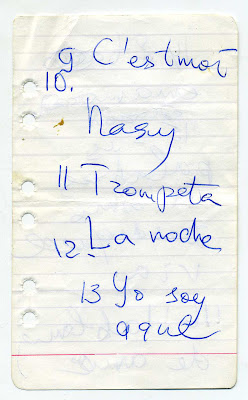 9 C'estmoi
10.
Nasuy
11 Trompeta
12. La noche
13 Yo soy
aque